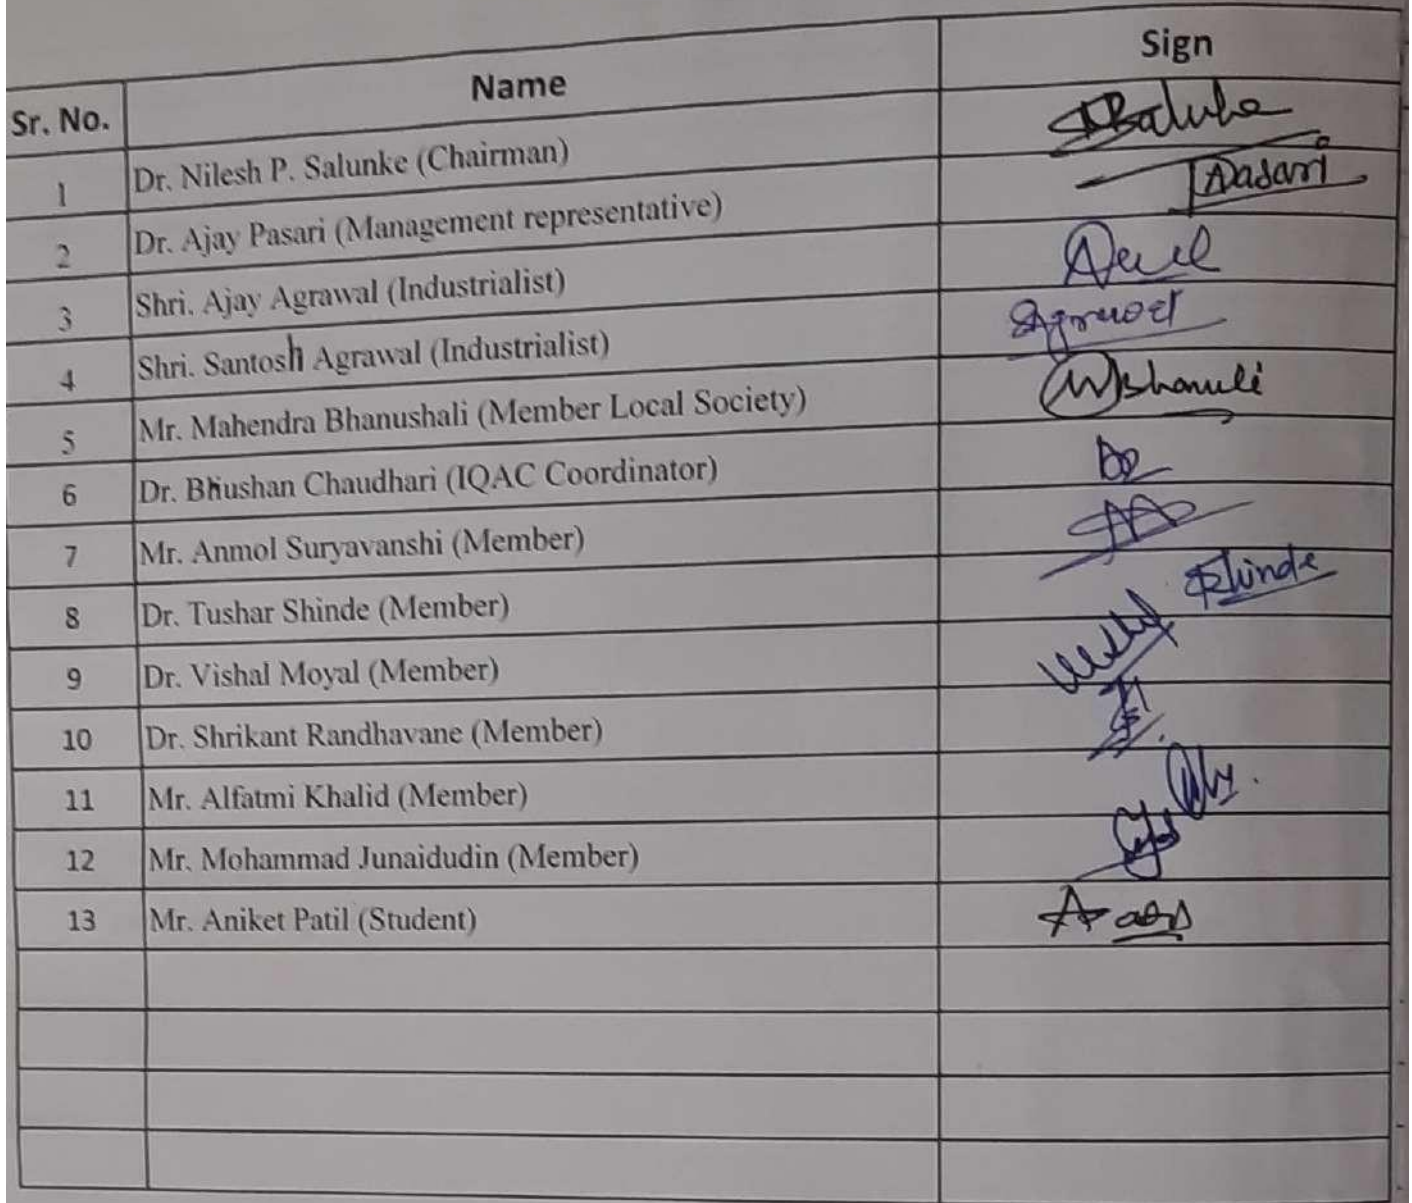 Sr. No. Name Sign
1 Dr. Nilesh P. Salunke (Chairman)
2 Dr. Ajay Pasari (Management representative)
3 Shri. Ajay Agrawal (Industrialist)
4 Shri. Santosh Agrawal (Industrialist)
5 Mr. Mahendra Bhanushali (Member Local Society)
6 Dr. Bhushan Chaudhari (IQAC Coordinator)
7 Mr. Anmol Suryavanshi (Member)
8 Dr. Tushar Shinde (Member) Shinde
9 Dr. Vishal Moyal (Member)
10 Dr. Shrikant Randhavane (Member)
11 Mr. Alfatmi Khalid (Member)
12 Mr. Mohammad Junaidudin (Member)
13 Mr. Aniket Patil (Student)